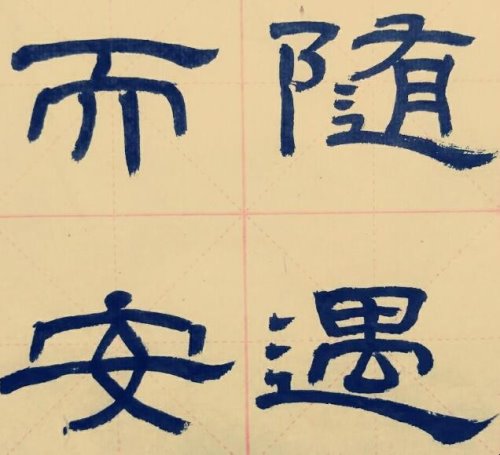 随遇
而安